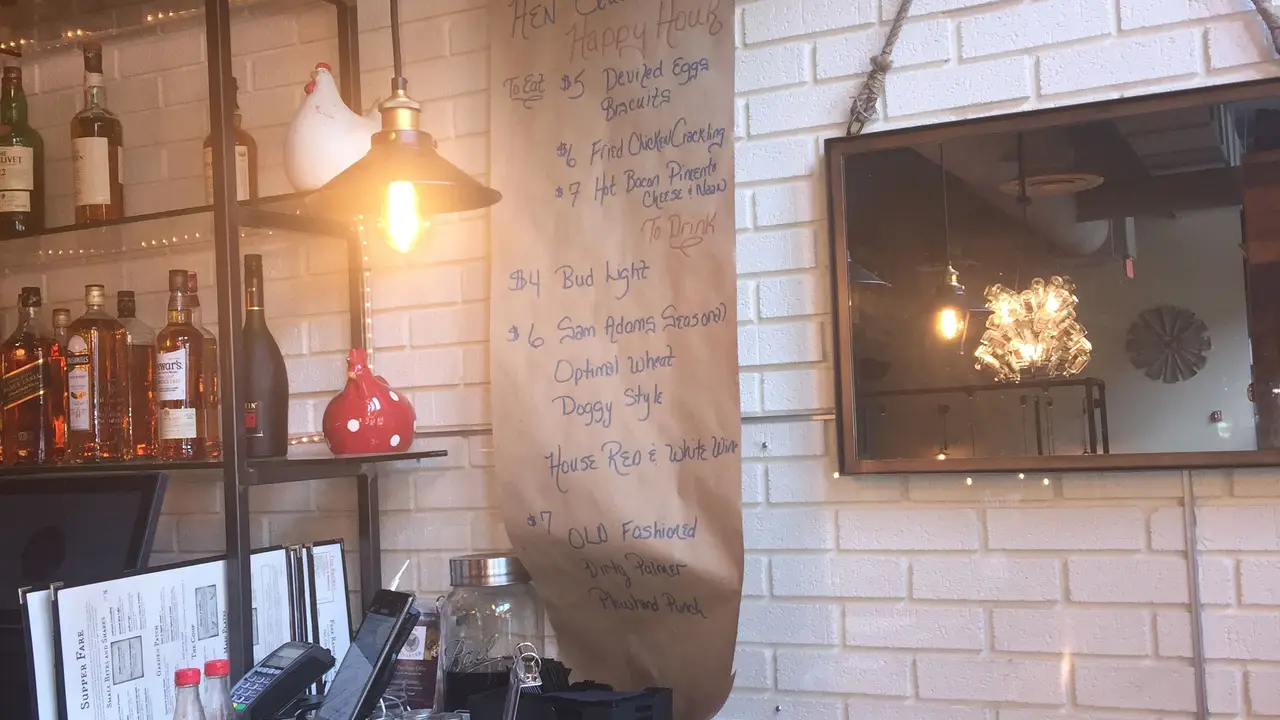 HEN
Happy Hour
To Eat $5 Deviled Eggs
Biscuits
$6 Fried Chicken Crackling
$7 Hot Bacon Pimento
Cheese & Naan
To Drink
$4 Bud Light
$6 Sam Adams Seasonal
Optimal Wheat
Doggy Style
House Red & White Wine
$7 OLD Fashioned
Dirty Palmer
Plowhard Punch
LIVET
12
war's.
SUPPER FARE
SMALL BITES AND SHARES
GARDEN PATCH
THE COOP
MAIN FARES